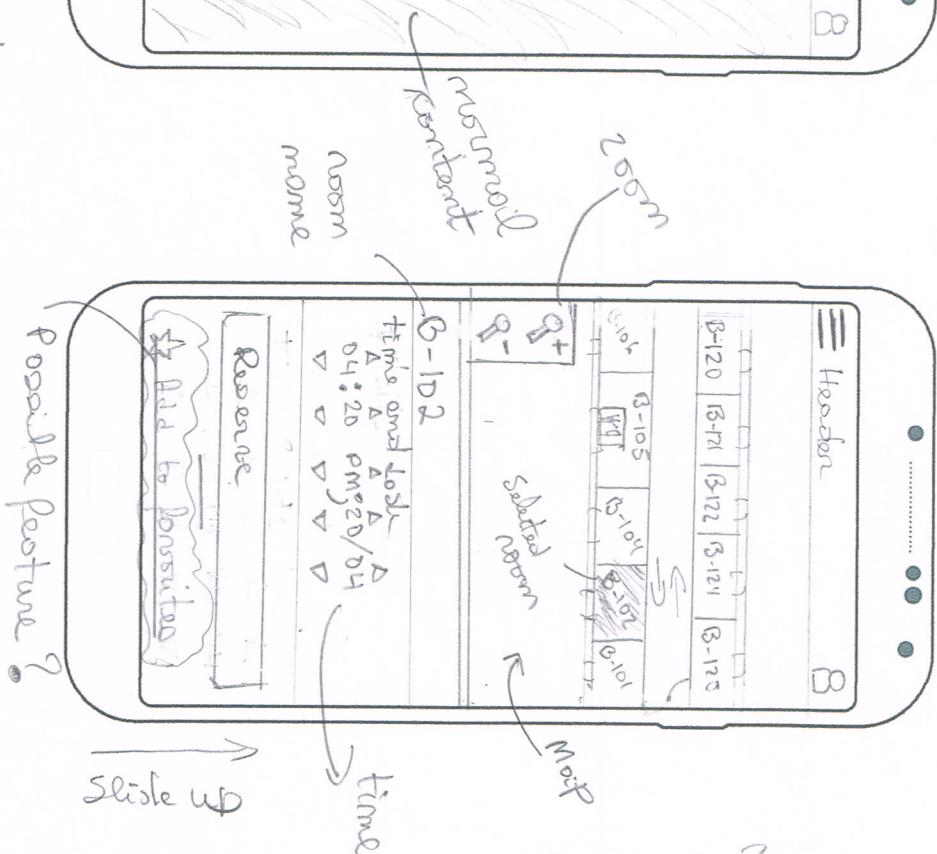 normal
content
zoom
room
name
Header
B-120 B-121 B-122 B-124 B-125
B-106 B-105 B-104 B-102 B-101
Selected
room
Map
B-102
time and date
04:20 PM;20/04
time
Reserve
Add to favorites
Possible feature?
Slide up